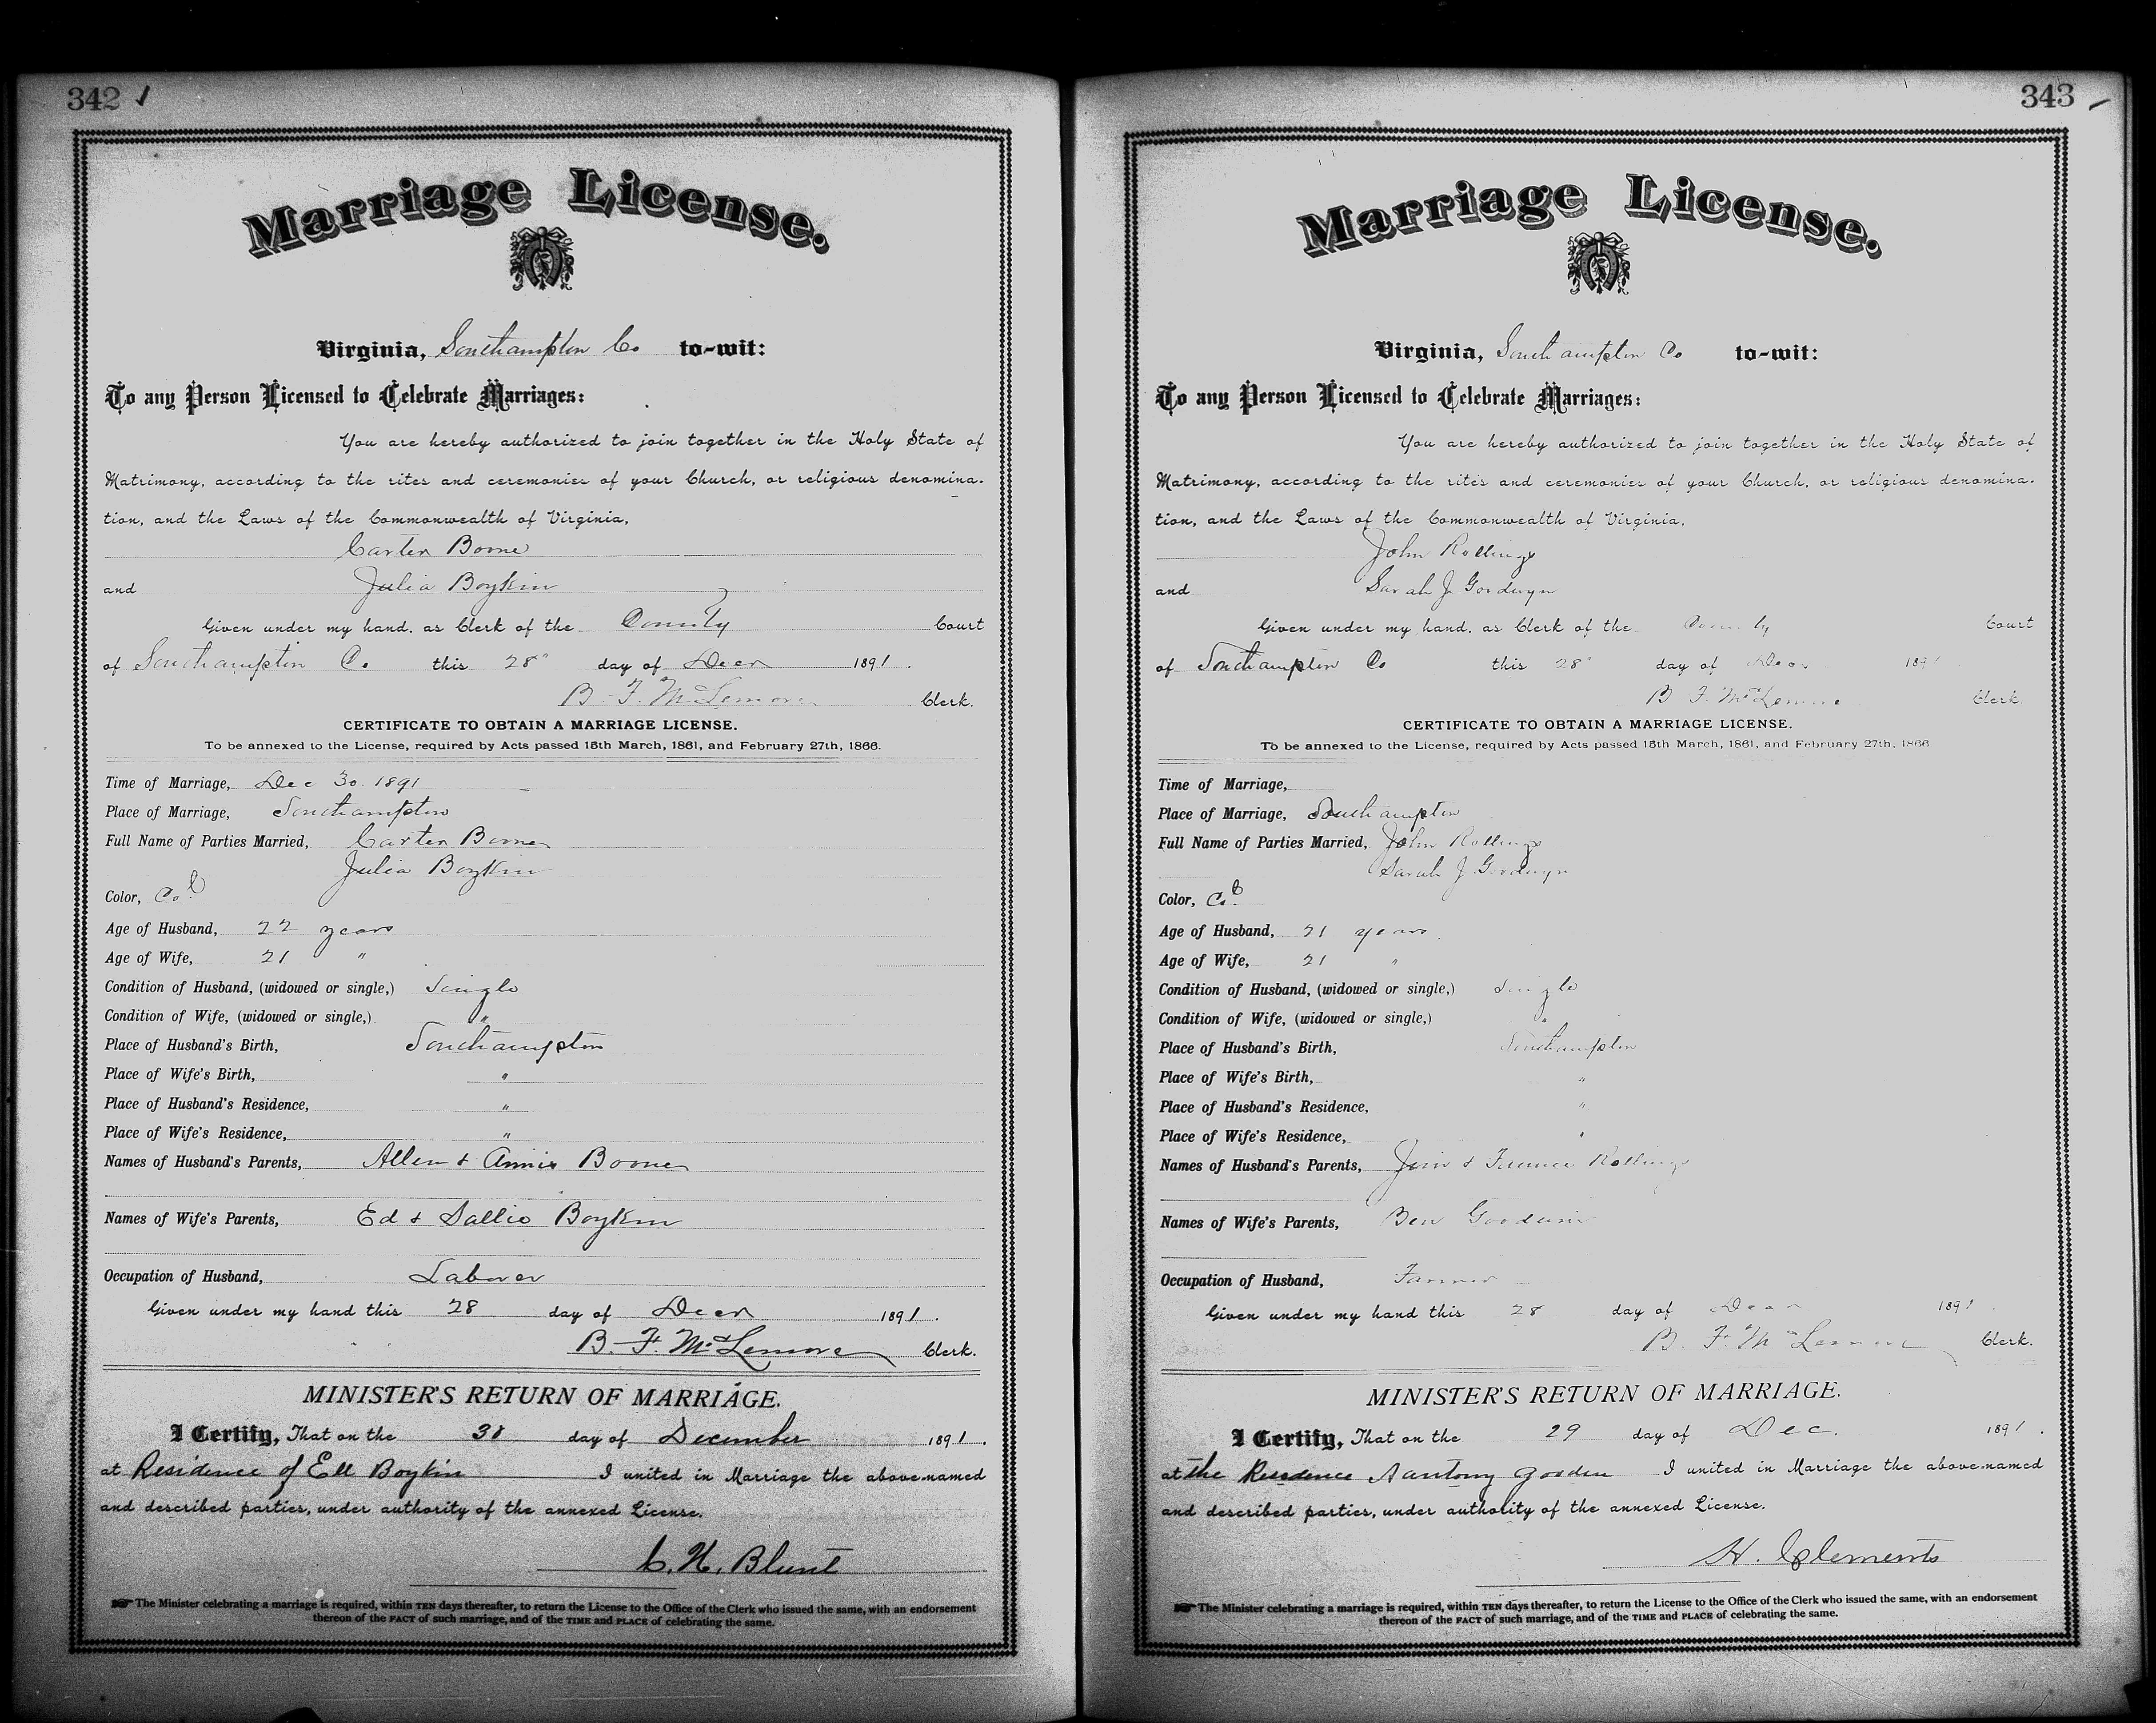 342
Marriage License.
Virginia, Southampton Co to-wit:
To any Person Licensed to Celebrate Marriages:
You are hereby authorized to join together in the Holy State of
Matrimony, according to the rites and ceremonies of your Church, or religious denomina-
tion, and the Laws of the Commonwealth of Virginia,
Carter Boone
and Julia Boykin
Given under my hand, as Clerk of the County Court
of Southampton Co this 28" day of Decr 1891.
B. F. McLemore Clerk.
CERTIFICATE TO OBTAIN A MARRIAGE LICENSE.
To be annexed to the License, required by Acts passed 15th March, 1861, and February 27th, 1866.
Time of Marriage, Dec 30. 1891
Place of Marriage, Southampton
Full Name of Parties Married, Carter Boone
Julia Boykin
Color, Cold
Age of Husband, 22 years
Age of Wife, 21 "
Condition of Husband, (widowed or single,) Single
Condition of Wife, (widowed or single,) "
Place of Husband's Birth, Southampton
Place of Wife's Birth, "
Place of Husband's Residence, "
Place of Wife's Residence, "
Names of Husband's Parents, Allen & Annie Boone
Names of Wife's Parents, Ed & Sallie Boykin
Occupation of Husband, Laborer
Given under my hand this 28 day of Decr 1891.
B. F. McLemore Clerk.
MINISTER'S RETURN OF MARRIAGE.
I Certify, That on the 30 day of December 1891.
at Residence of Ed Boykin I united in Marriage the above-named
and described parties, under authority of the annexed License.
C. H. Blunt
The Minister celebrating a marriage is required, within TEN days thereafter, to return the License to the Office of the Clerk who issued the same, with an endorsement
thereon of the FACT of such marriage, and of the TIME and PLACE of celebrating the same.
343
Marriage License.
Virginia, Southampton Co to-wit:
To any Person Licensed to Celebrate Marriages:
You are hereby authorized to join together in the Holy State of
Matrimony, according to the rites and ceremonies of your Church, or religious denomina-
tion, and the Laws of the Commonwealth of Virginia,
John Rollings
and Sarah J. Goodwyn
Given under my hand, as Clerk of the County Court
of Southampton Co this 28" day of Decr 1891
B F McLemore Clerk.
CERTIFICATE TO OBTAIN A MARRIAGE LICENSE.
To be annexed to the License, required by Acts passed 15th March, 1861, and February 27th, 1866.
Time of Marriage,
Place of Marriage, Southampton
Full Name of Parties Married, John Rollings
Sarah J. Goodwyn
Color, Cold
Age of Husband, 21 years
Age of Wife, 21 "
Condition of Husband, (widowed or single,) Single
Condition of Wife, (widowed or single,) "
Place of Husband's Birth, Southampton
Place of Wife's Birth, "
Place of Husband's Residence, "
Place of Wife's Residence, "
Names of Husband's Parents, Jim & Rollings
Names of Wife's Parents, Ben Goodwin
Occupation of Husband, Farmer
Given under my hand this 28 day of Decr 1891.
B. F. McLemore Clerk.
MINISTER'S RETURN OF MARRIAGE.
I Certify, That on the 29 day of Dec. 1891.
at the Residence Gooden I united in Marriage the above-named
and described parties, under authority of the annexed License.
H. Clements
The Minister celebrating a marriage is required, within TEN days thereafter, to return the License to the Office of the Clerk who issued the same, with an endorsement
thereon of the FACT of such marriage, and of the TIME and PLACE of celebrating the same.